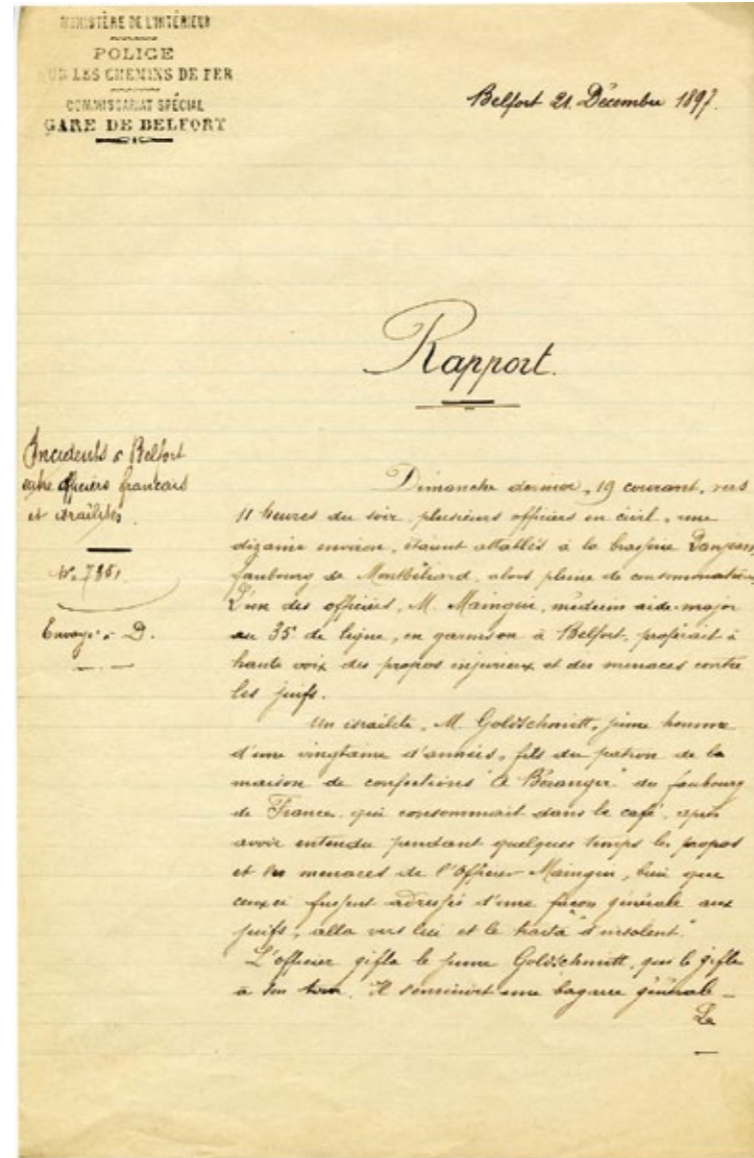 MINISTÈRE DE L'INTÉRIEUR
POLICE
SUR LES CHEMINS DE FER
COMMISSARIAT SPÉCIAL
GARE DE BELFORT
Belfort 21 Décembre 1897.
Rapport.
Incidents à Belfort
entre officiers français
et israélites
N° 7851
Envoyé à D.
Dimanche dernier, 19 courant, vers
11 heures du soir, plusieurs officiers en civil, une
dizaine environ, étaient attablés à la brasserie
faubourg de Montbéliard, alors pleine de consommateurs,
L'un des officiers, M. Maingui, médecin aide-major
au 35e de ligne, en garnison à Belfort, proférait à
haute voix des propos injurieux et des menaces contre
les juifs.
Un israélite, M. Goldschmitt, jeune homme
d'une vingtaine d'années, fils du patron de la
maison de confections "A Béranger" du faubourg
de France, qui consommait dans le café, après
avoir entendu pendant quelques temps les propos
et les menaces de l'Officier Maingui, bien que
ceux ci fussent adressés d'une façon générale aux
juifs, alla vers lui et le traita "d'insolent."
L'officier gifla le jeune Goldschmitt, qui le gifla
à son tour. Il s'ensuivit une bagarre générale _
Le